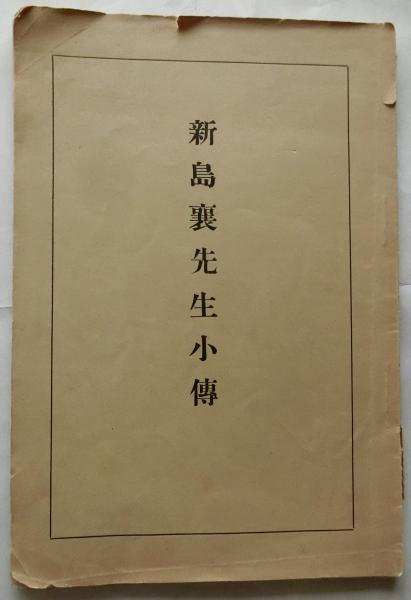 新島襄先生小傳